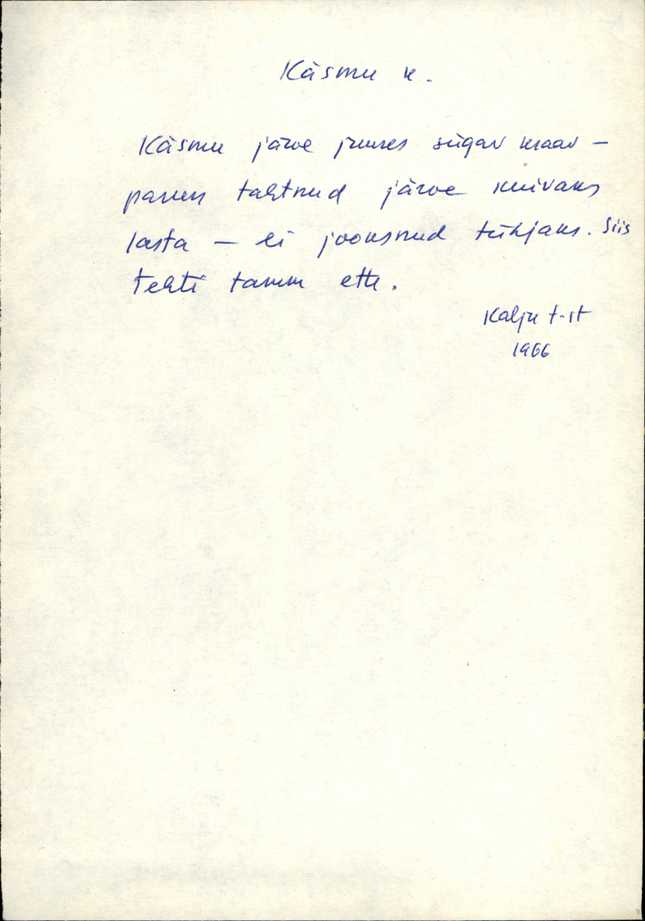 Käsmu k.
Käsmu järve juures sügav kraav –
parun tahtnud järve kuivaks
lasta – ei jooksnud tühjaks. Siis
tehti tamm ette.
Kalju t-lt
1966